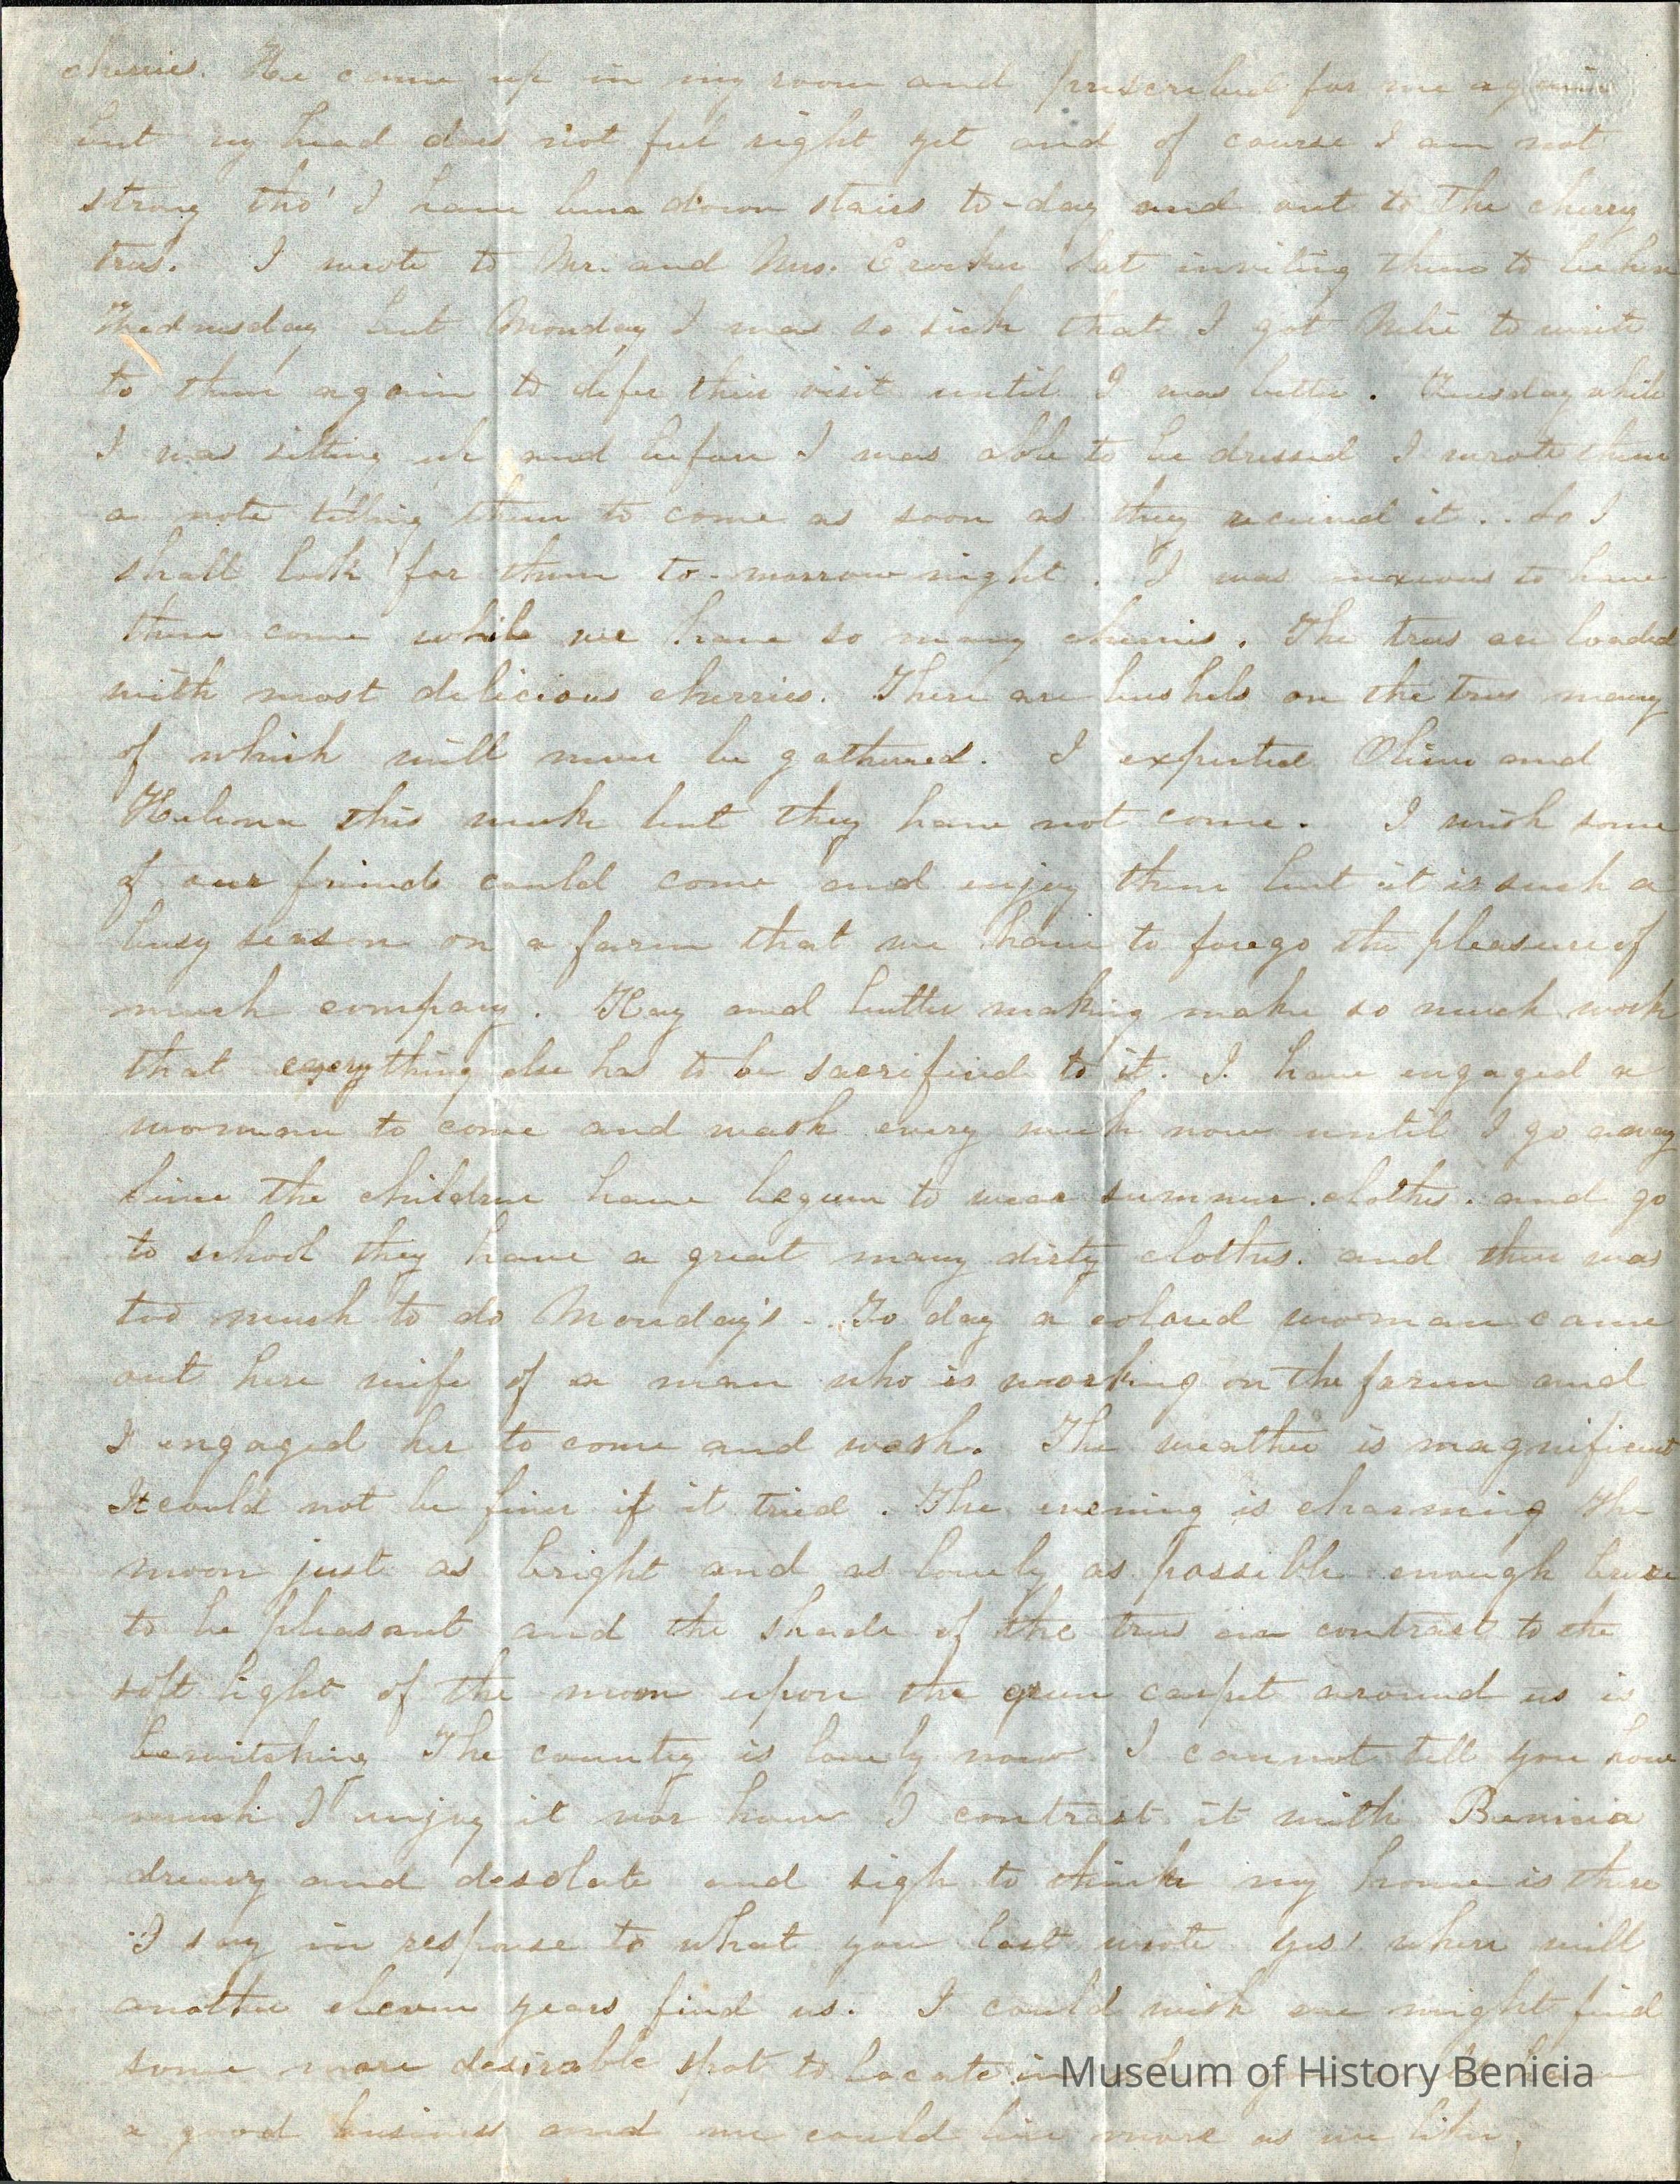 cherries. He came up in my room and prescribed for me again
but my head does not feel right yet and of course I am not
strong tho' I have been down stairs to-day and out to the cherry
trees. I wrote to Mr. and Mrs. Crocker Sat inviting them to be here
Wednesday but Monday I was so sick that I got Julie to write
to them again to defer their visit until I was better. Tuesday while
I was sitting up and before I was able to be dressed I wrote them
a note telling them to come as soon as they received it. So I
shall look for them to-morrow night. I was anxious to have
them come while we have so many cherries. The trees are loaded
with most delicious cherries. There are bushels on the trees many
of which will never be gathered. I expected Olive and
Helena this week but they have not come. I wish some
of our friends could come and enjoy them but it is such a
busy season on a farm that we have to forego the pleasure of
much company. Hay and butter making make so much work
that everything else has to be sacrificed to it. I have engaged a
woman to come and wash every week now until I go away
Since the children have begun to wear summer clothes. and go
to school they have a great many dirty clothes. and there was
too much to do Monday's. To day a colored woman came
out here wife of a man who is working on the farm and
I engaged her to come and wash. The weather is magnificent
It could not be finer if it tried. The evening is charming the
moon just as bright and as lovely as possible enough breeze
to be pleasant and the shade of the trees in contrast to the
soft light of the moon upon the green carpet around us is
bewitching The country is lovely now I cannot tell you how
much I enjoy it nor how I contrast it with Benicia
dreary and desolate and sigh to think my home is there
I say in response to what you last wrote yes! where will
another eleven years find us. I could wish we might find
some more desirable spot to locate in
a good business and we could live more as we like.
Museum of History Benicia